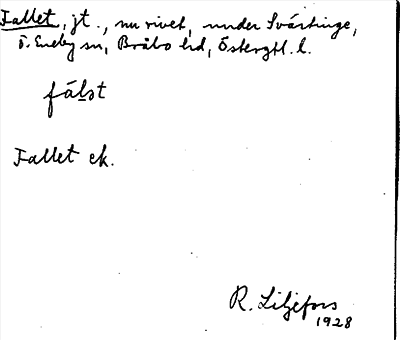 Fallet, jt., nu rivet, under Svärtinge,
Ö. Eneby sn, Bråbo hd, Östergtl. l.
fálət
Fallet ek.
R. Liljefors
1928